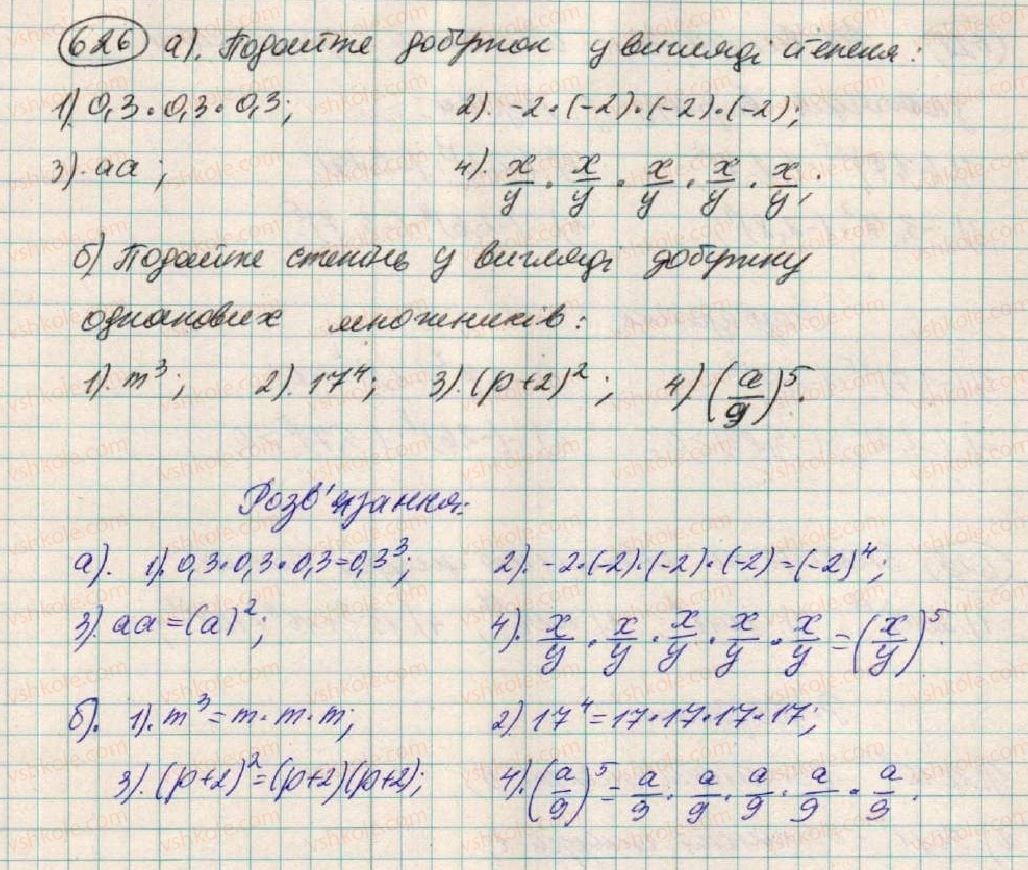 626 а). Подайте добуток у вигляді степеня:
1) 0,3·0,3·0,3; 2). -2·(-2)·(-2)·(-2);
3). aa; 4). x/y · x/y · x/y · x/y · x/y;
б) Подайте степінь у вигляді добутку
однакових множників:
1). m³; 2). 17⁴; 3). (p+2)²; 4) (a/9)⁵.
Розв'язання:
а). 1). 0,3·0,3·0,3=0,3³; 2). -2·(-2)·(-2)·(-2)=(-2)⁴;
3). aa=(a)²; 4). x/y · x/y · x/y · x/y · x/y = (x/y)⁵.
б). 1). m³=m·m·m; 2) 17⁴=17·17·17·17;
3). (p+2)²=(p+2)(p+2); 4). (a/9)⁵= a/9 · a/9 · a/9 · a/9 · a/9.